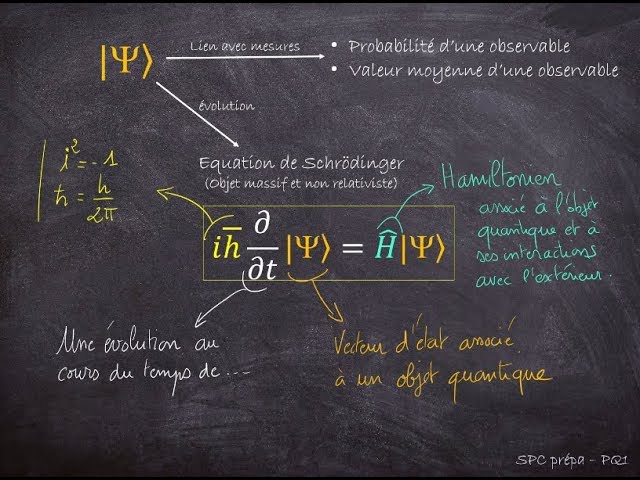 |Ψ⟩
Lien avec mesures
• Probabilité d'une observable
• Valeur moyenne d'une observable
évolution
i² = -1
ħ = h/2π
Equation de Schrödinger
(Objet massif et non relativiste)
iħ ∂/∂t |Ψ⟩ = Ĥ|Ψ⟩
Hamiltonien
associé à l'objet
quantique et à
ses interactions
avec l'extérieur.
Une évolution au
cours du temps de ...
Vecteur d'état associé
à un objet quantique
SPC prépa - PQ1